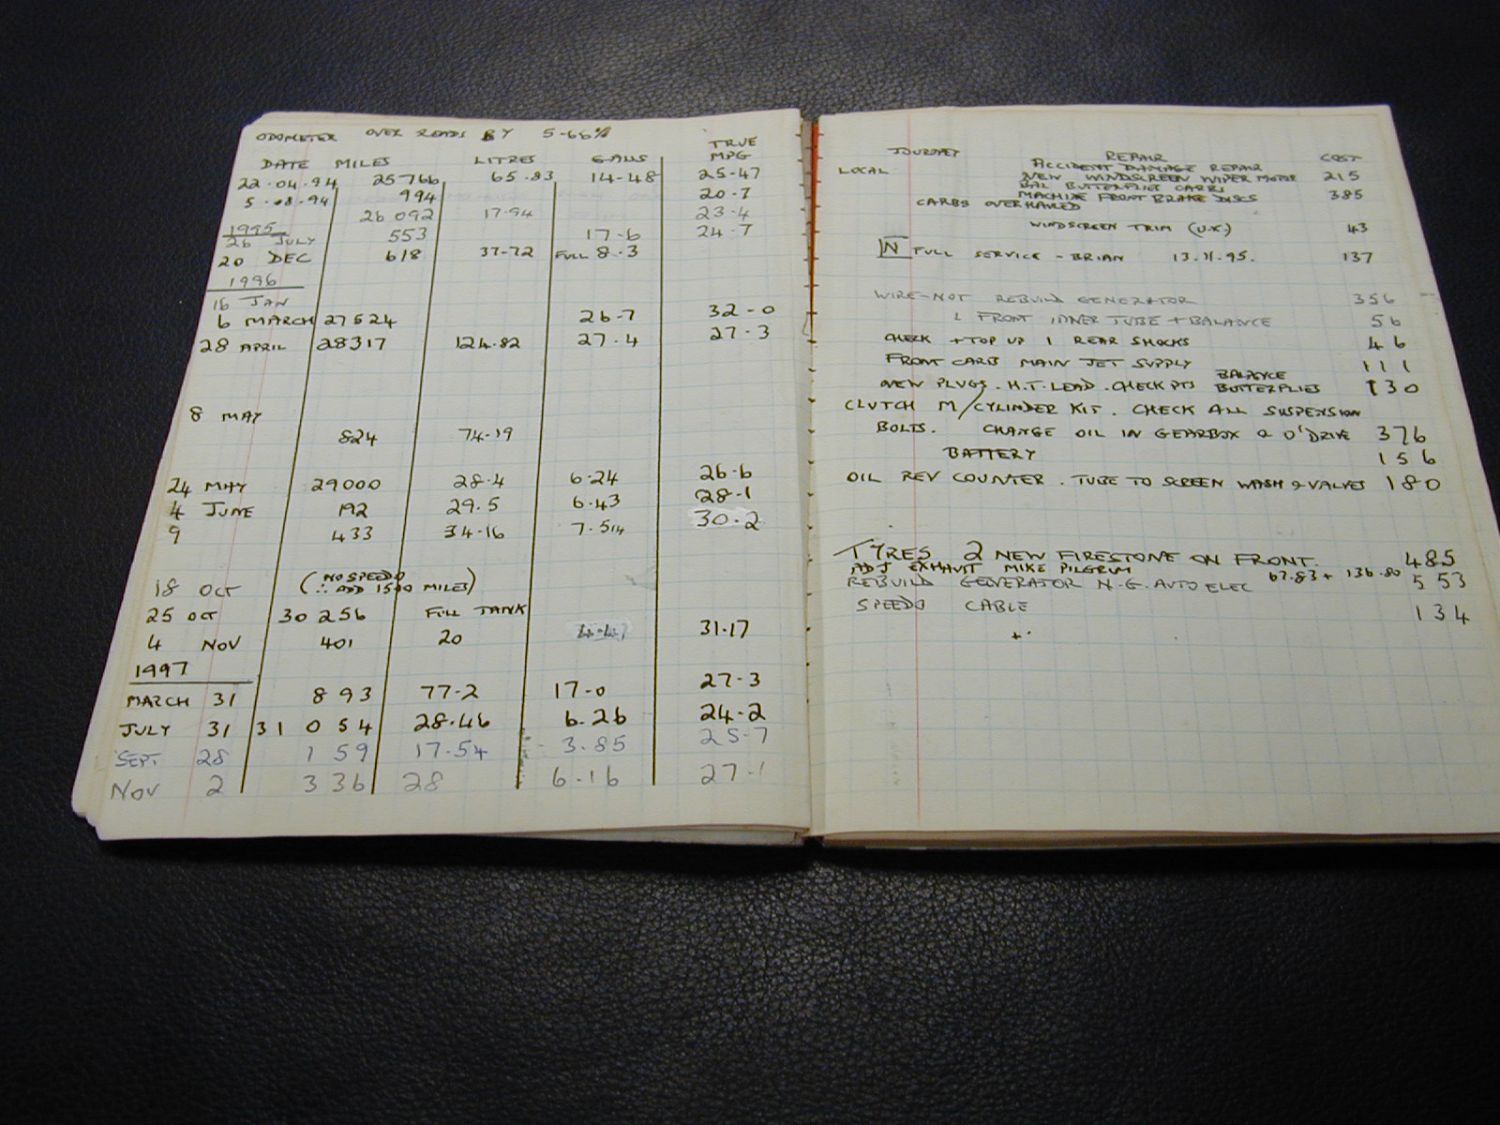 ODOMETER OVER READS BY 5-66%
DATE MILES LITRES GALLS TRUE MPG
22.04.94 25766 65.83 14-48 25-47
5.08.94 994 20.7
26 092 17.94 23.4
1995
26 JULY 553 17-6 24-7
20 DEC 618 37-72 FULL 8.3
1996
16 JAN
6 MARCH 27524 26-7 32-0
28 APRIL 28317 124.82 27.4 27-3
8 MAY
824 74-19
24 MAY 29000 28.4 6.24 26-6
4 JUNE 192 29.5 6.43 28-1
9 433 34-16 7.514 30-2
18 OCT (NO SPEEDO
∴ ADD 1500 MILES)
25 OCT 30 256 FULL TANK
4 NOV 401 20 31.17
1997
MARCH 31 893 77-2 17-0 27-3
JULY 31 31 054 28.46 6.26 24-2
SEPT. 28 159 17.54 3.85 25-7
NOV 2 336 28 6-16 27-1
JOURNEY REPAIR COST
LOCAL ACCIDENT DAMAGE REPAIR
NEW WINDSCREEN WIPER MOTOR 215
BAL BUTTERFLIES CARBS
MACHINE FRONT BRAKE DISCS 385
CARBS OVERHAULED
WINDSCREEN TRIM (U.K.) 43
N FULL SERVICE - BRIAN 13.11.95. 137
WIRE-NOT REBUILD GENERATOR 356
1 FRONT INNER TUBE + BALANCE 56
CHECK + TOP UP 1 REAR SHOCKS 46
FRONT CARB MAIN JET SUPPLY 111
NEW PLUGS. H.T. LEAD. CHECK PTS BALANCE BUTTERFLIES 130
CLUTCH M/CYLINDER KIT. CHECK ALL SUSPENSION
BOLTS. CHANGE OIL IN GEARBOX & O'DRIVE 376
BATTERY 156
OIL REV COUNTER. TUBE TO SCREEN WASH & VALVES 180
TYRES 2 NEW FIRESTONE ON FRONT. 485
ADJ EXHAUST MIKE PILGRIM
REBUILD GENERATOR N.G. AUTO ELEC 67.83 + 136.80 553
SPEEDO CABLE 134